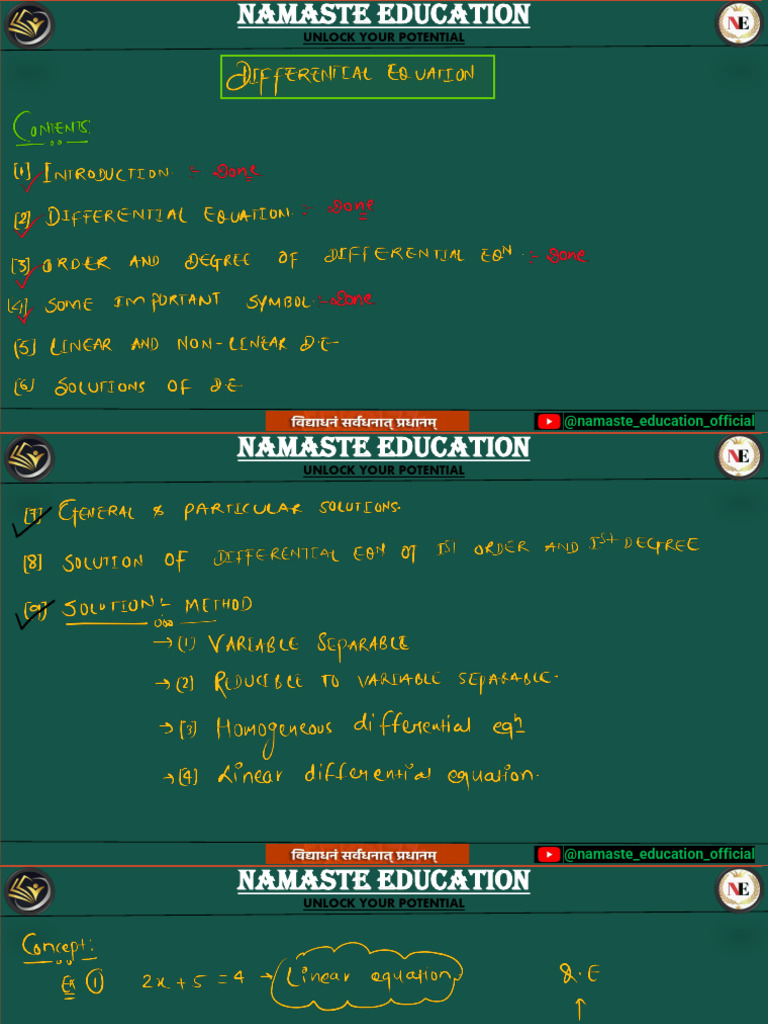 NAMASTE EDUCATION
UNLOCK YOUR POTENTIAL
NE
DIFFERENTIAL EQUATION
CONTENTS:
[1] INTRODUCTION :- Done
[2] DIFFERENTIAL EQUATION :- Done
[3] ORDER AND DEGREE OF DIFFERENTIAL EQN :- Done
[4] SOME IMPORTANT SYMBOL :- Done
[5] LINEAR AND NON-LINEAR D.E
[6] SOLUTIONS OF D.E
विद्याधनं सर्वधनात् प्रधानम्
@namaste_education_official
NAMASTE EDUCATION
UNLOCK YOUR POTENTIAL
NE
[7] GENERAL & PARTICULAR SOLUTIONS.
[8] SOLUTION OF DIFFERENTIAL EQN OF IST ORDER AND IST DEGREE
[9] SOLUTION :- METHOD
→ (1) VARIABLE SEPARABLE
→ (2) REDUCIBLE TO VARIABLE SEPARABLE.
→ [3] Homogeneous differential eqn
→ [4] Linear differential equation.
विद्याधनं सर्वधनात् प्रधानम्
@namaste_education_official
NAMASTE EDUCATION
UNLOCK YOUR POTENTIAL
NE
Concept:
Ex ① 2x + 5 = 4 → Linear equation D.E
↑